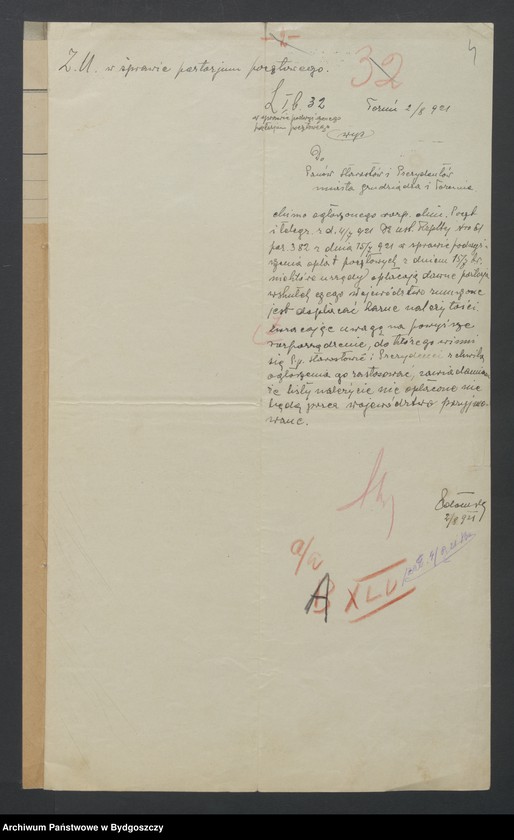 4
32
Z.U. w sprawie portorjum pocztowego.
L I b 32
Toruń 2/8 921
w sprawie podwyższonego
portorjum pocztowego
Do
Panów Starostów i Prezydentów
miasta Grudziądza i Torunia
Mimo ogłoszonego rozp. Min. Poczt
i Telegr. z d. 4/7 921 Dz. ust. Rzpltej Nro 61
poz. 382 z dnia 15/7 921 w sprawie podwyż-
szenia opłat pocztowych z dniem 15/7 br.
niektóre urzędy opłacają dawne
wskutek czego województwo zmuszone
jest dopłacać karne należytości.
Zwracając uwagę na powyższe
rozporządzenie, do którego winni
się Pp. Starostowie i Prezydenci z chwilą
ogłoszenia go zastosować, zawiadamiam
że listy należycie nie opłacone nie
będą przez województwo przyjmo-
wane.
2/8 921
a/a
A
B XLV
Archiwum Państwowe w Bydgoszczy